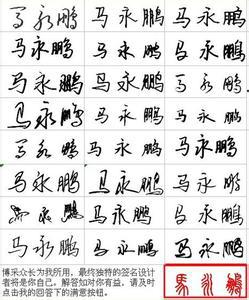 马永鹏 马永鹏 马永鹏
马永鹏 马永鹏 马永鹏
马永鹏 马永鹏 马永鹏
马永鹏 马永鹏 马永鹏
马永鹏 马永鹏 马永鹏
马永鹏 马永鹏 马永鹏
马永鹏 马永鹏 马永鹏
马永鹏 马永鹏 马永鹏
博采众长为我所用，最终独特的签名设计
者将是你自己。解答如对你有益，请及时
点击我的回答下的满意按钮。
馬永鵬